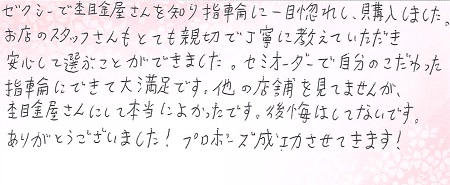 ゼクシーで杢目金屋さんを知り指輪に一目惚れし、購入しました。
お店のスタッフさんもとても親切で丁寧に教えていただき
安心して選ぶことができました。セミオーダーで自分のこだわった
指輪にできて大満足です。他の店舗を見てませんが、
杢目金屋さんにして本当によかったです。後悔はしてないです。
ありがとうございました！プロポーズ成功させてきます！